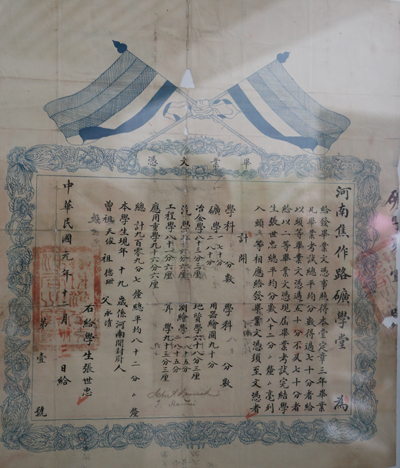 畢業文憑
河南焦作路礦學堂 為
給發畢業文憑事照得本堂定章三年畢業
凡畢業考試總平均分數得過七十分者給
以頭等畢業文憑過五十分不及七十分者
給以二等畢業文憑現屆畢業考試完結學
生張世忠總平均分數八十二分 釐列
入頭等相應給發畢業文憑須至文憑者
計開
學科 分數 學科 分數
礦學 用器繪圖九十分
冶金學八十 分三釐 地質學六十八分三釐
測繪學 十五分
工程學八十 分六釐 算學九十三分三釐
應用重學九十六分六釐
總計九百零九分七釐總平均八十二分 釐
本學生現年十九歲係河南開封府人
曾祖天保 祖德 父永清
右給學生張世忠
中華民國元年十二月 日給
第壹號